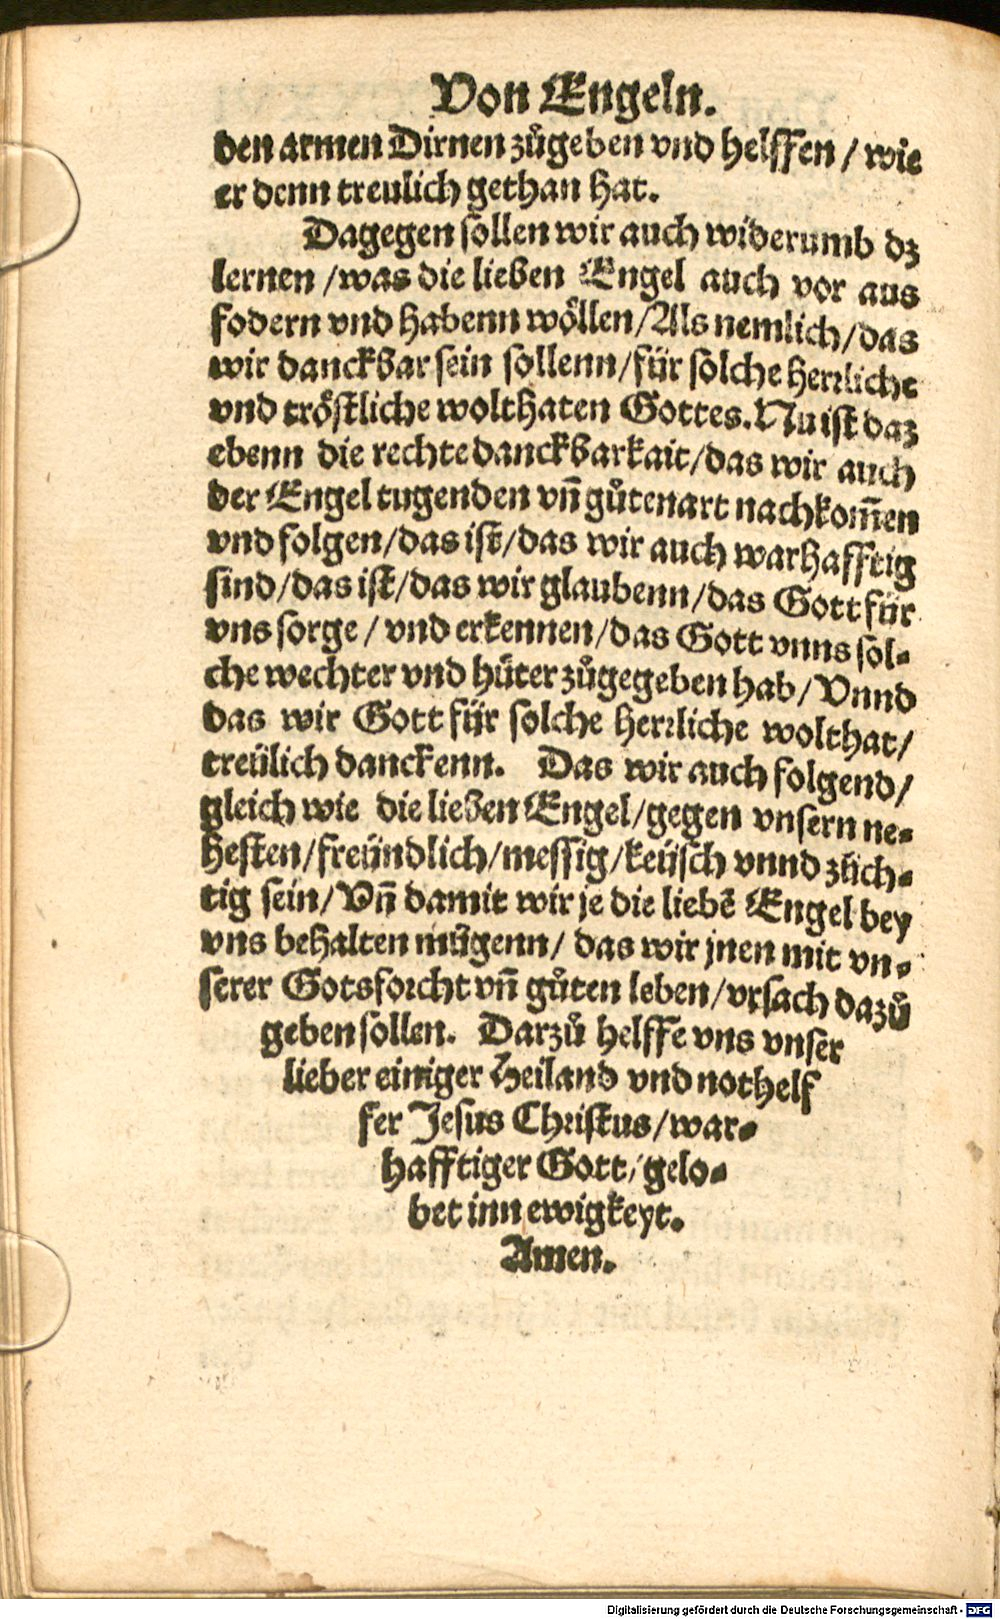 Von Engeln.
den armen Dirnen zůgeben vnd helffen / wie
er denn treulich gethan hat.
Dagegen sollen wir auch widerumb dz
lernen /was die lieben Engel auch vor aus
fodern vnd habenn wöllen/Als nemlich/das
wir danckbar sein sollenn/für solche herrliche
vnd tröstliche wolthaten Gottes. Nu ist daz
ebenn die rechte danckbarkait/das wir auch
der Engel tugenden vñ gůtenart nachkom̄en
vnd folgen/das ist/das wir auch warhafftig
sind/das ist/das wir glaubenn/das Gott für
vns sorge / vnd erkennen/das Gott vnns sol-
che wechter vnd hüter zůgegeben hab/ Vnnd
das wir Gott für solche herrliche wolthat/
treülich danckenn. Das wir auch folgend/
gleich wie die lieben Engel/gegen vnsern ne-
hesten/freündlich/messig/keüsch vnnd züch-
tig sein/ Vñ damit wir je die liebẽ Engel bey
vns behalten mügenn/ das wir jnen mit vn-
serer Gotsforcht vñ gůten leben/vrsach dazů
geben sollen. Darzů helffe vns vnser
lieber einiger Heiland vnd nothelf
fer Jesus Christus/war-
hafftiger Gott/gelo-
bet inn ewigkeyt.
Amen.
Digitalisierung gefördert durch die Deutsche Forschungsgemeinschaft - DFG